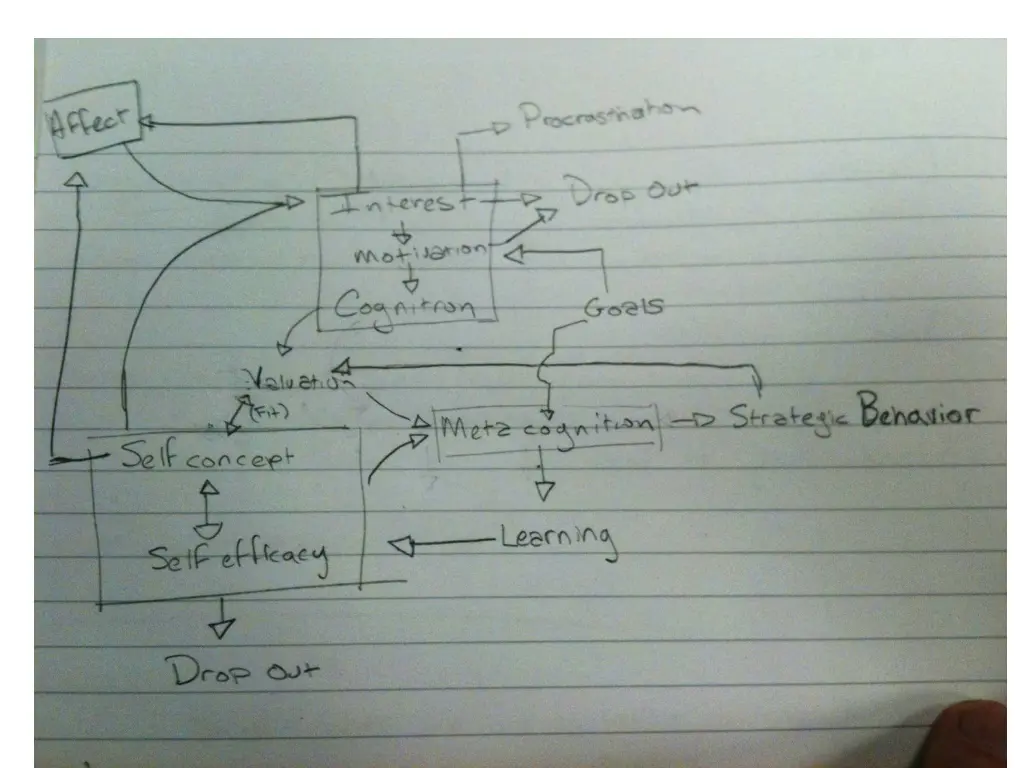 Affect
Procrastination
Interest
Drop Out
Motivation
Cognition
Goals
Valuation
(Fit)
Meta cognition
Strategic Behavior
Self concept
Learning
Self efficacy
Drop out